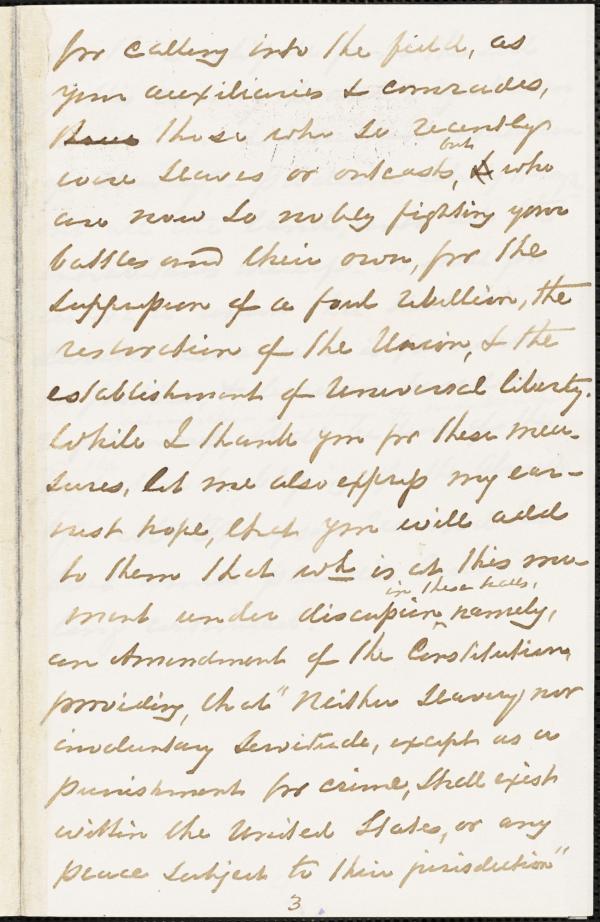 for calling into the field, as
your auxiliaries & comrades,
those who so recently
were slaves or outcasts, but who
are now so nobly fighting your
battles and their own, for the
suppression of a foul rebellion, the
restoration of the Union, & the
establishment of universal liberty.
While I thank you for these mea-
sures, let me also express my ear-
nest hope, that you will add
to them that wh is at this mo-
ment under discussion in these halls, namely,
an Amendment of the Constitution,
providing, that "Neither slavery nor
involuntary servitude, except as a
punishment for crime, shall exist
within the United States, or any
place subject to their jurisdiction"
3